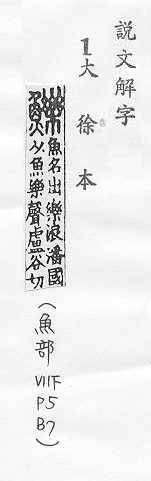 説文解字
1大徐本
鱳
魚名出樂浪潘國
从魚樂聲盧谷切
(魚部 VII下 P5 B7)